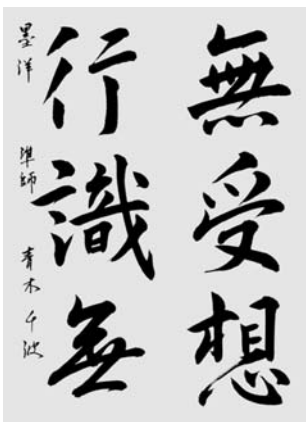 無受想
行識無
墨洋 準師 青木千波